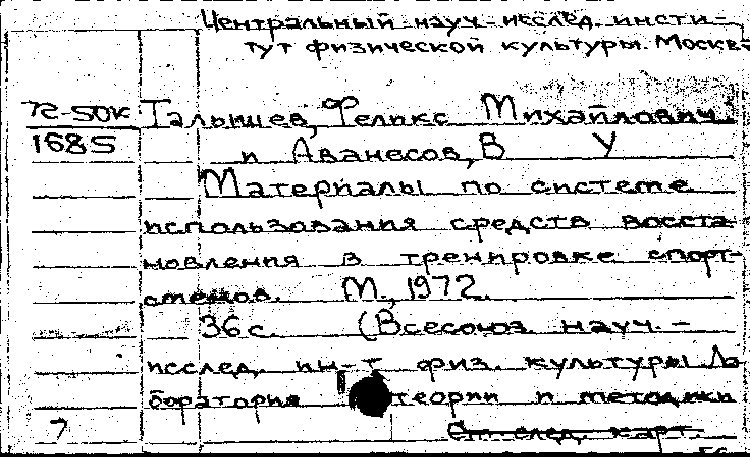 Центральный науч-исслед. инсти-
тут физической культуры. Москва
72-50к Талышев, Феликс Михайлович
1685 и Аванесов, В У
Материалы по системе
использования средств восста-
новления в тренировке спорт-
сменов. М., 1972.
36 с. (Всесоюз науч. -
исслед. ин-т физ. культуры Ла
боратория теории и методики
7 См. след. карт.